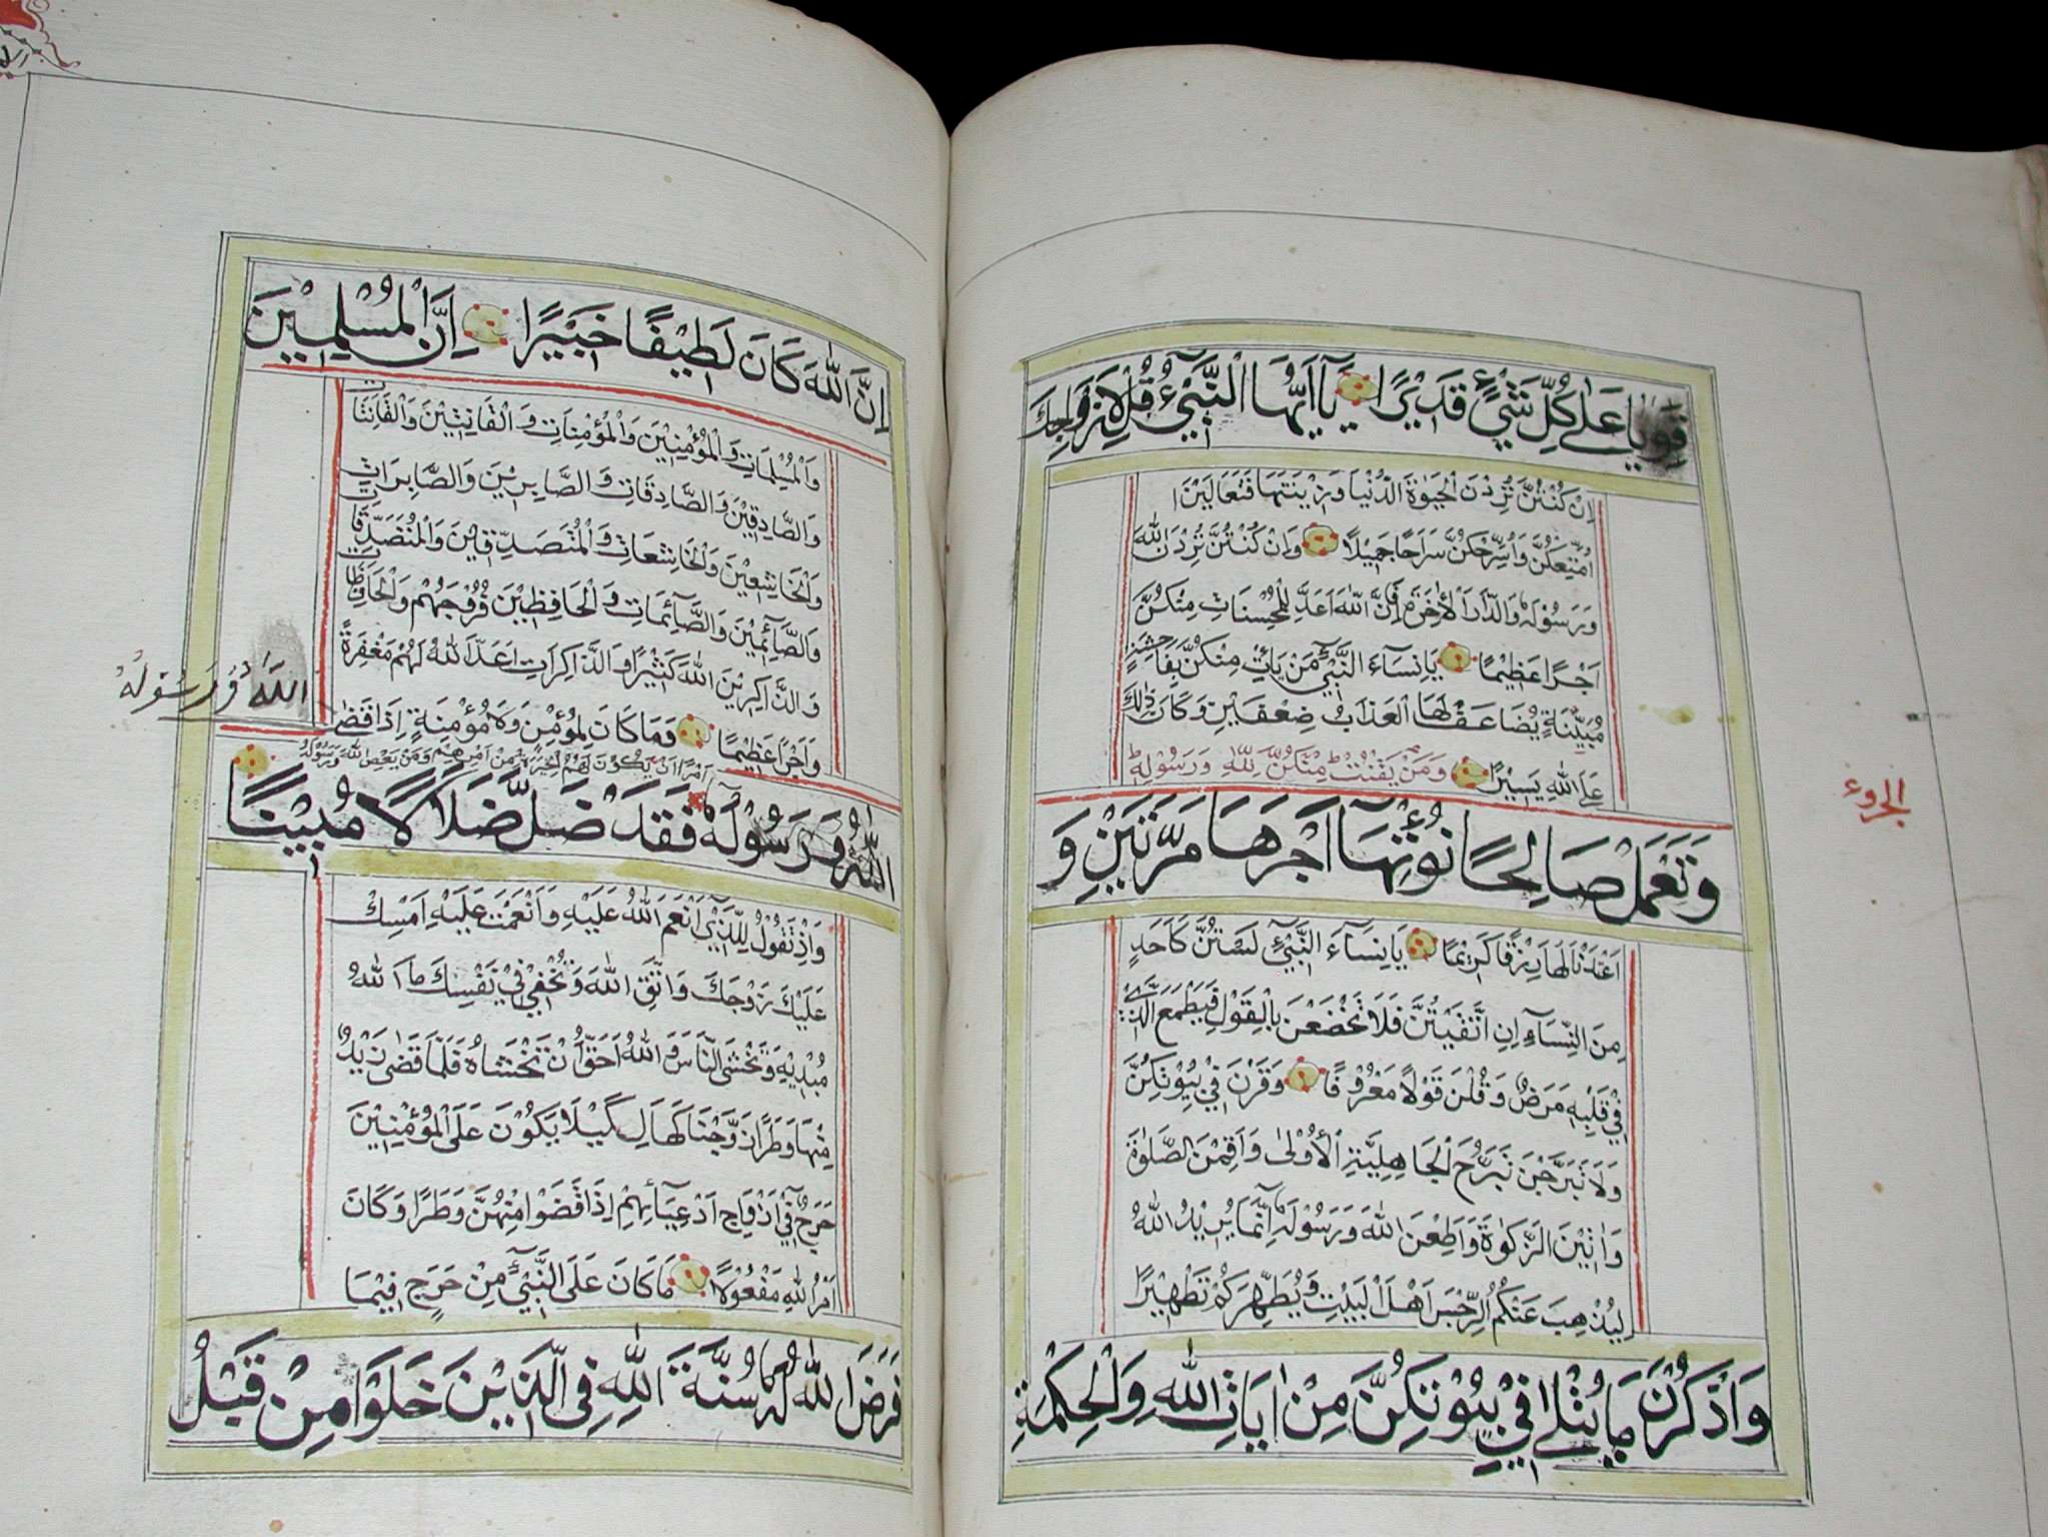 قَوِيًّا عَلٰى كُلِّ شَيْءٍ قَدِيْرًا يَآ اَيُّهَا النَّبِيُّ قُلْ لِاَزْوَاجِكَ
اِنْ كُنْتُنَّ تُرِدْنَ الْحَيٰوةَ الدُّنْيَا وَزِيْنَتَهَا فَتَعَالَيْنَ
اُمَتِّعْكُنَّ وَاُسَرِّحْكُنَّ سَرَاحًا جَمِيْلًا وَاِنْ كُنْتُنَّ تُرِدْنَ اللّٰهَ
وَرَسُوْلَهُ وَالدَّارَ الْاٰخِرَةَ فَاِنَّ اللّٰهَ اَعَدَّ لِلْمُحْسِنَاتِ مِنْكُنَّ
اَجْرًا عَظِيْمًا يَا نِسَآءَ النَّبِيِّ مَنْ يَاْتِ مِنْكُنَّ بِفَاحِشَةٍ
مُبَيِّنَةٍ يُضَاعَفْ لَهَا الْعَذَابُ ضِعْفَيْنِ وَكَانَ ذٰلِكَ
عَلَى اللّٰهِ يَسِيْرًا وَمَنْ يَقْنُتْ مِنْكُنَّ لِلّٰهِ وَرَسُوْلِهِ
الجزوء
وَتَعْمَلْ صَالِحًا نُؤْتِهَآ اَجْرَهَا مَرَّتَيْنِ وَ
اَعْتَدْنَا لَهَا رِزْقًا كَرِيْمًا يَا نِسَآءَ النَّبِيِّ لَسْتُنَّ كَاَحَدٍ
مِنَ النِّسَآءِ اِنِ اتَّقَيْتُنَّ فَلَا تَخْضَعْنَ بِالْقَوْلِ فَيَطْمَعَ الَّذِيْ
فِيْ قَلْبِهِ مَرَضٌ وَقُلْنَ قَوْلًا مَعْرُوْفًا وَقَرْنَ فِيْ بُيُوْتِكُنَّ
وَلَا تَبَرَّجْنَ تَبَرُّجَ الْجَاهِلِيَّةِ الْاُوْلٰى وَاَقِمْنَ الصَّلٰوةَ
وَاٰتِيْنَ الزَّكٰوةَ وَاَطِعْنَ اللّٰهَ وَرَسُوْلَهُ اِنَّمَا يُرِيْدُ اللّٰهُ
لِيُذْهِبَ عَنْكُمُ الرِّجْسَ اَهْلَ الْبَيْتِ وَيُطَهِّرَكُمْ تَطْهِيْرًا
وَاذْكُرْنَ مَا يُتْلٰى فِيْ بُيُوْتِكُنَّ مِنْ اٰيَاتِ اللّٰهِ وَالْحِكْمَةِ
اِنَّ اللّٰهَ كَانَ لَطِيْفًا خَبِيْرًا اِنَّ الْمُسْلِمِيْنَ
وَالْمُسْلِمَاتِ وَالْمُؤْمِنِيْنَ وَالْمُؤْمِنَاتِ وَالْقَانِتِيْنَ وَالْقَانِتَاتِ
وَالصَّادِقِيْنَ وَالصَّادِقَاتِ وَالصَّابِرِيْنَ وَالصَّابِرَاتِ
وَالْخَاشِعِيْنَ وَالْخَاشِعَاتِ وَالْمُتَصَدِّقِيْنَ وَالْمُتَصَدِّقَاتِ
وَالصَّآئِمِيْنَ وَالصَّآئِمَاتِ وَالْحَافِظِيْنَ فُرُوْجَهُمْ وَالْحَافِظَاتِ
وَالذَّاكِرِيْنَ اللّٰهَ كَثِيْرًا وَالذَّاكِرَاتِ اَعَدَّ اللّٰهُ لَهُمْ مَغْفِرَةً
اللّٰهُ وَرَسُوْلُهُ
وَاَجْرًا عَظِيْمًا وَمَا كَانَ لِمُؤْمِنٍ وَلَا مُؤْمِنَةٍ اِذَا قَضٰى
اَمْرًا اَنْ يَكُوْنَ لَهُمُ الْخِيَرَةُ مِنْ اَمْرِهِمْ وَمَنْ يَعْصِ اللّٰهَ وَرَسُوْلَهُ
اللّٰهُ وَرَسُوْلُهُ فَقَدْ ضَلَّ ضَلَالًا مُبِيْنًا
وَاِذْ تَقُوْلُ لِلَّذِيْ اَنْعَمَ اللّٰهُ عَلَيْهِ وَاَنْعَمْتَ عَلَيْهِ اَمْسِكْ
عَلَيْكَ زَوْجَكَ وَاتَّقِ اللّٰهَ وَتُخْفِيْ فِيْ نَفْسِكَ مَا اللّٰهُ
مُبْدِيْهِ وَتَخْشَى النَّاسَ وَاللّٰهُ اَحَقُّ اَنْ تَخْشَاهُ فَلَمَّا قَضٰى زَيْدٌ
مِنْهَا وَطَرًا زَوَّجْنَاكَهَا لِكَيْلَا يَكُوْنَ عَلَى الْمُؤْمِنِيْنَ
حَرَجٌ فِيْ اَزْوَاجِ اَدْعِيَآئِهِمْ اِذَا قَضَوْا مِنْهُنَّ وَطَرًا وَكَانَ
اَمْرُ اللّٰهِ مَفْعُوْلًا مَا كَانَ عَلَى النَّبِيِّ مِنْ حَرَجٍ فِيْمَا
فَرَضَ اللّٰهُ لَهُ سُنَّةَ اللّٰهِ فِي الَّذِيْنَ خَلَوْا مِنْ قَبْلُ